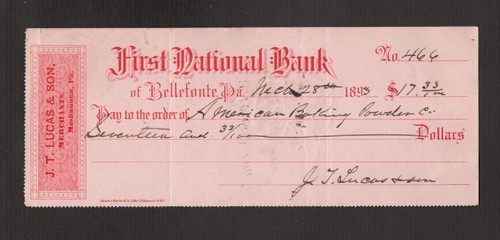 J. T. LUCAS & SON,
MERCHANTS,
Moshannon, Pa.
First National Bank
No. 466
of Bellefonte, Pa. Mch 28th 1893 $17.33/100
Pay to the order of American Baking Powder Co
Seventeen and 33/100 Dollars
J. T. Lucas & son